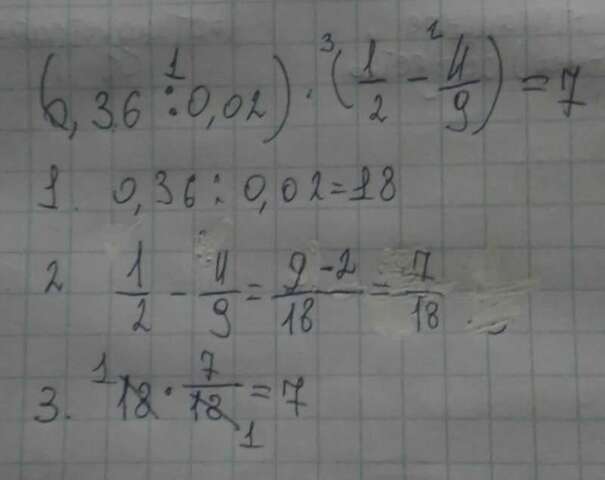 (0,36 :¹ 0,02) ·³ (1/2 -² 4/9) = 7
1. 0,36 : 0,02 = 18
2 1/2 - 4/9 = 9-2/18 = 7/18
3. ¹18 · 7/18₁ = 7